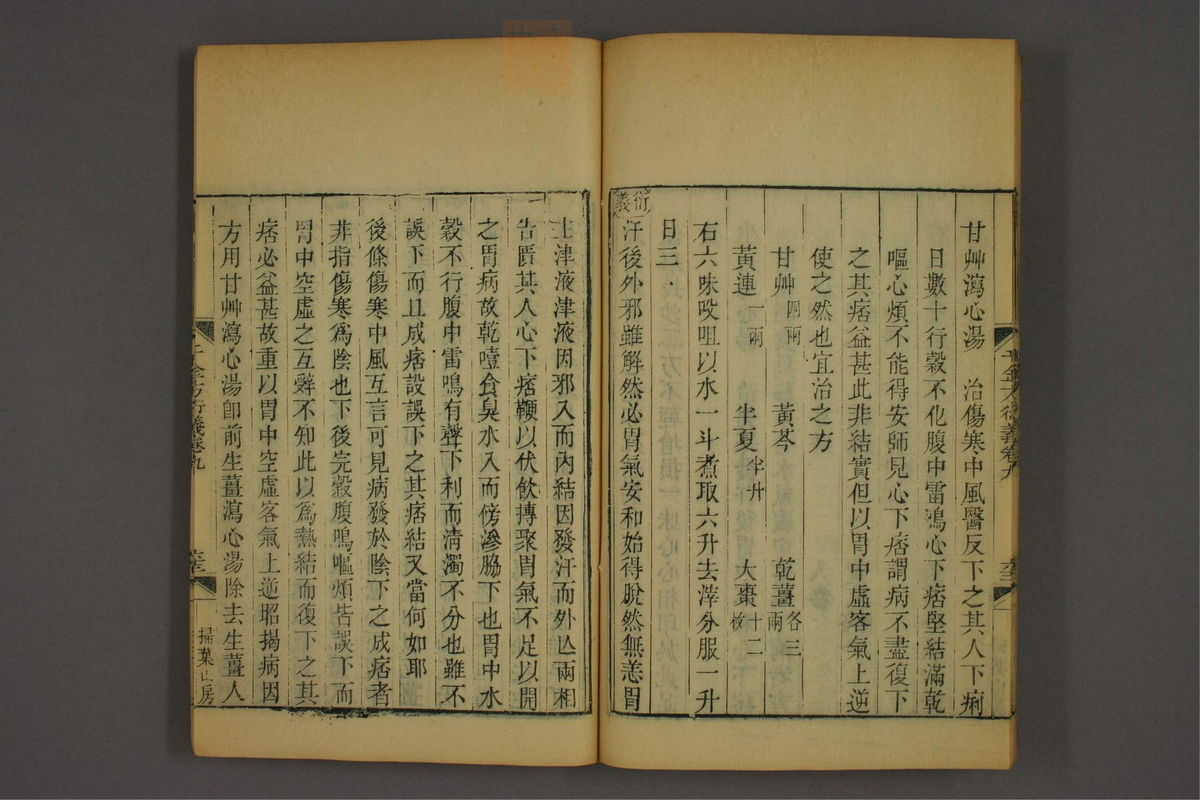 甘艸瀉心湯　治傷寒中風醫反下之其人下痢
日數十行穀不化腹中雷鳴心下痞堅結滿乾
嘔心煩不能得安師見心下痞謂病不盡復下
之其痞益甚此非結實但以胃中虛客氣上逆
使之然也宜治之方
甘艸四兩　黃芩　乾薑各三兩
黃連一兩　半夏半升　大棗十二枚
右六味㕮咀以水一斗煮取六升去滓分服一升
日三
衍義
汗後外邪雖解然必胃氣安和始得脫然無恙胃
主津液津液因邪入而內結因發汗而外亾兩相
告匱其人心下痞鞕以伏飲摶聚胃氣不足以開
之胃病故乾噫食臭水入而傍滲脇下也胃中水
穀不行腹中雷鳴有聲下利而清濁不分也雖不
誤下而且成痞設誤下之其痞結又當何如耶
後條傷寒中風互言可見病發於陰下之成痞者
非指傷寒爲陰也下後完穀腹鳴嘔煩皆誤下而
胃中空虛之互辭不知此以爲熱結而復下之其
痞必益甚故重以胃中空虛客氣上逆昭揭病因
方用甘艸瀉心湯卽前生薑瀉心湯除去生薑人
千金方衍義卷九
掃葉山房